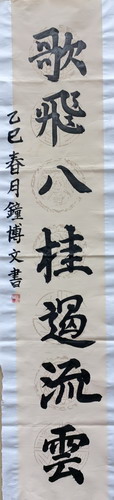 歌飛八桂遏流雲
乙巳春月鐘博文書